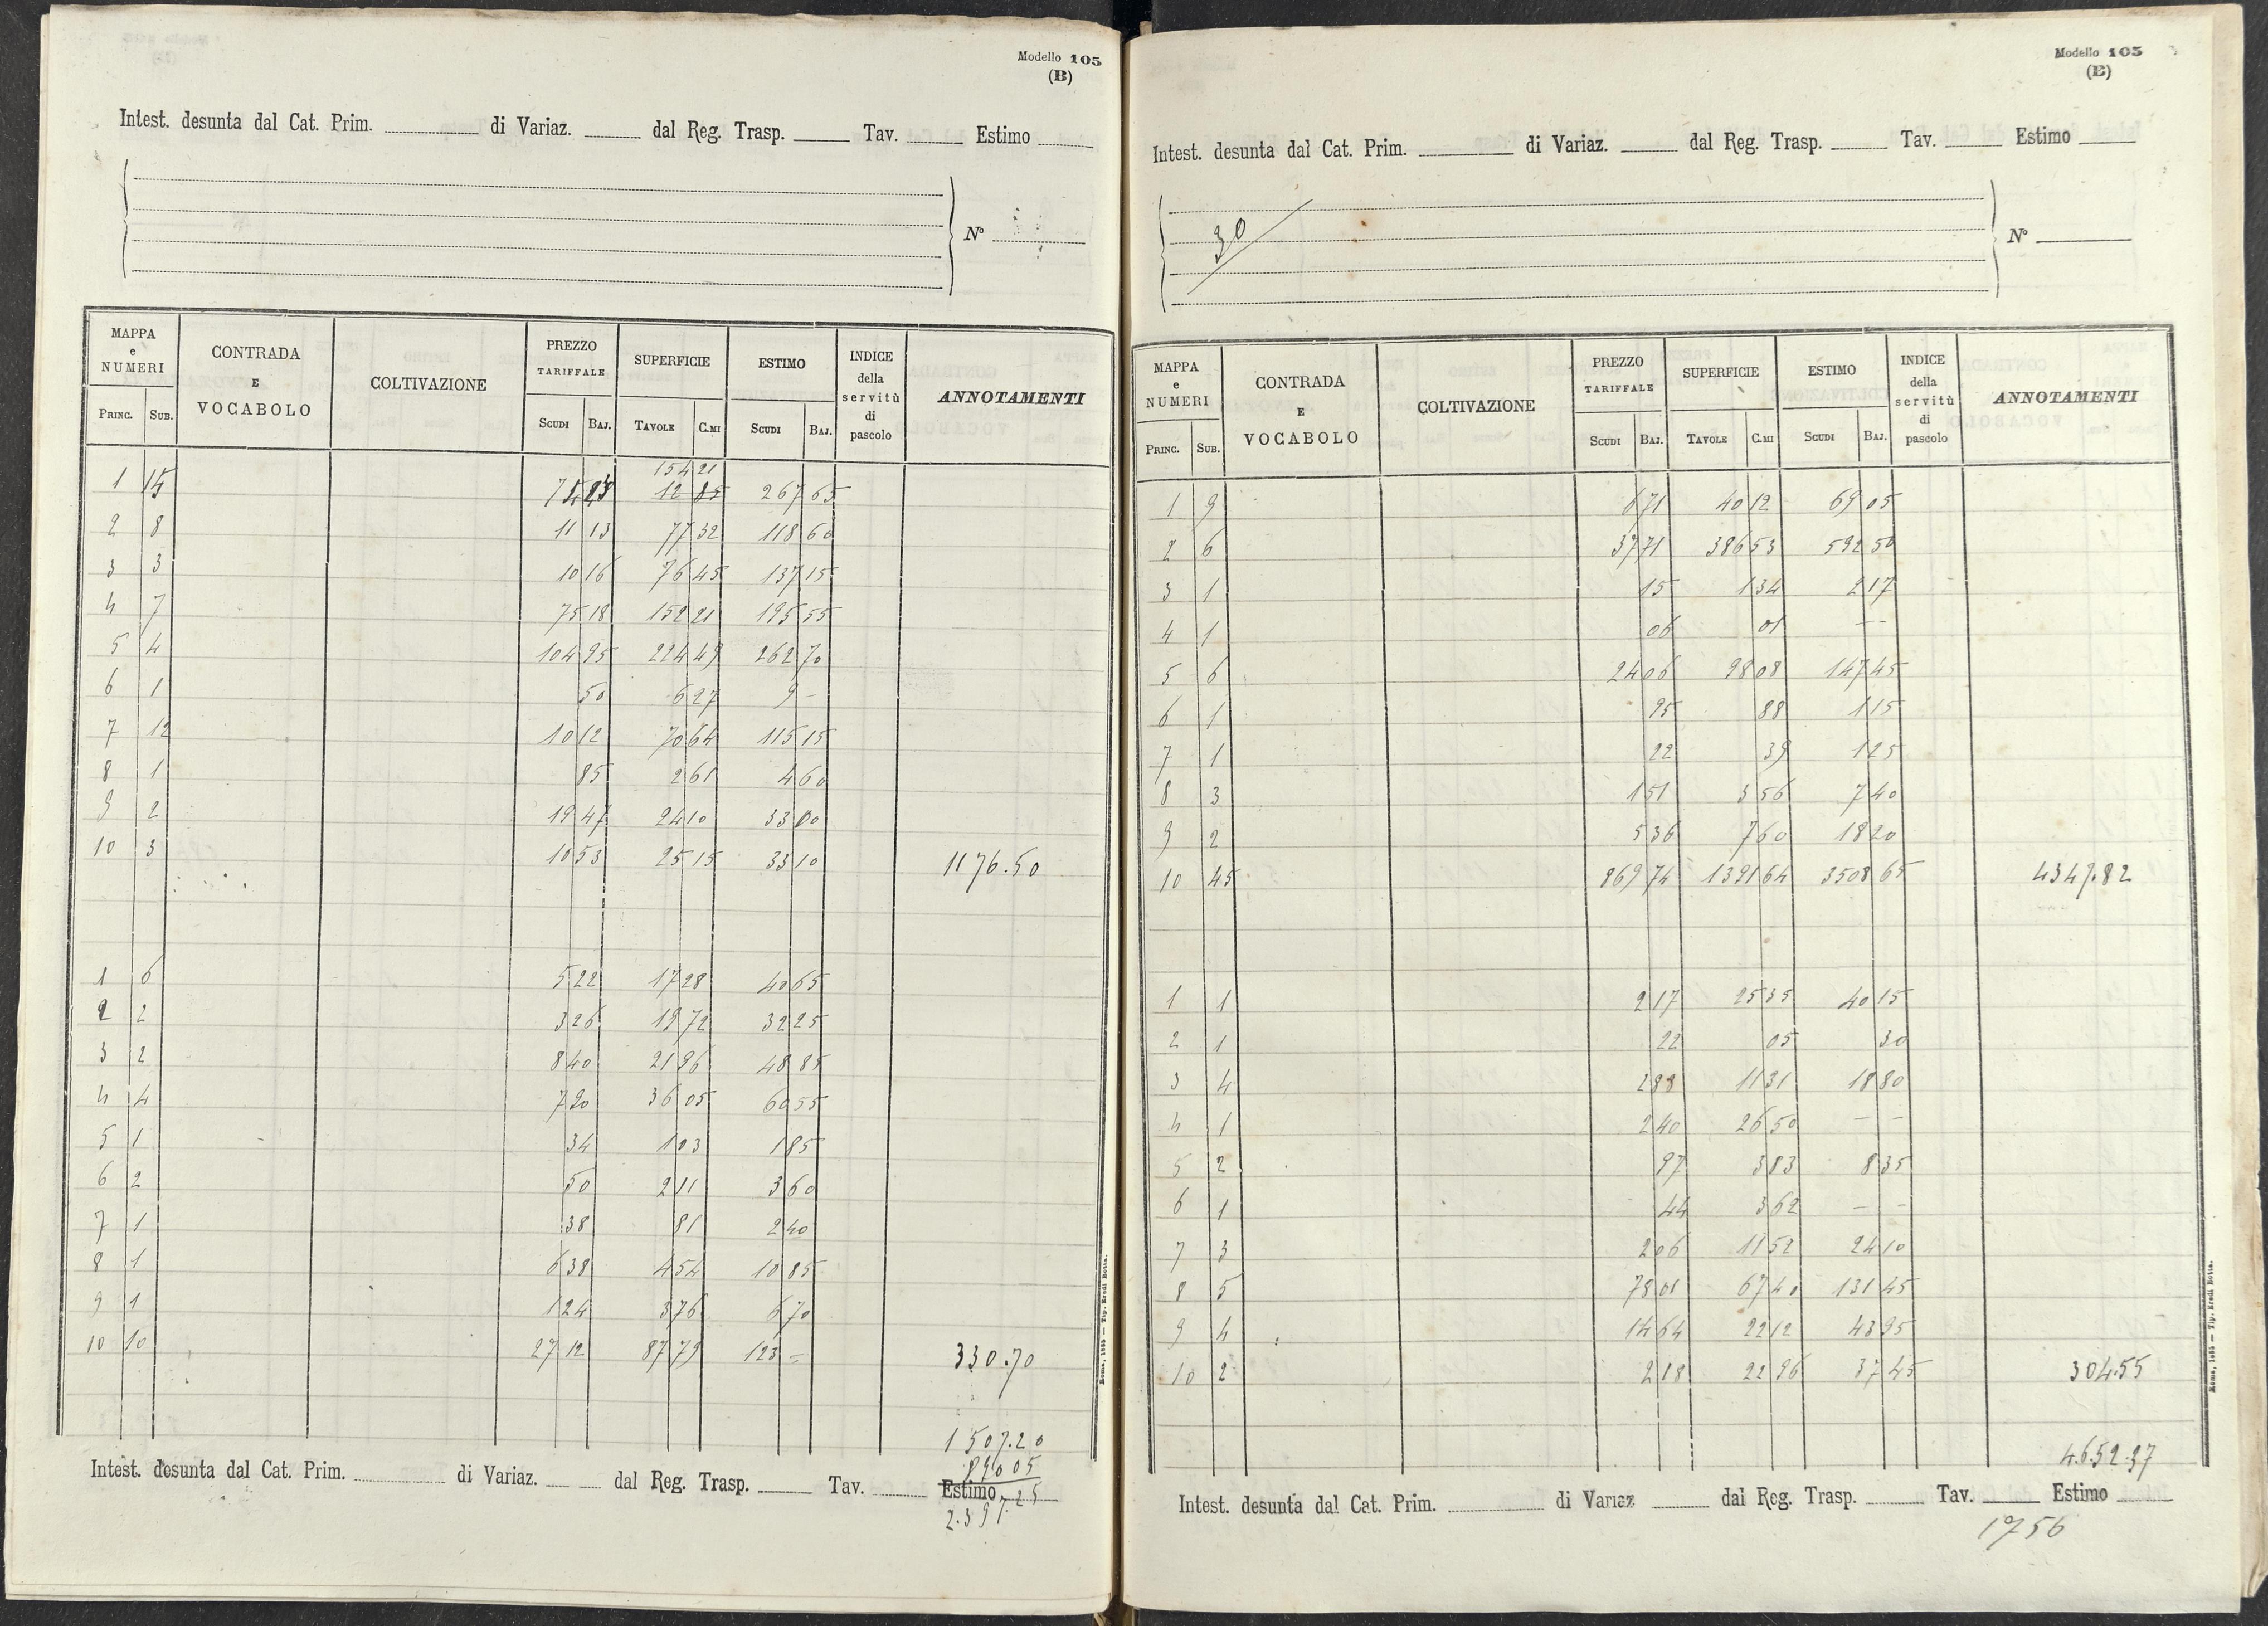 Modello 105
(B)
Intest. desunta dal Cat. Prim. di Variaz. dal Reg. Trasp. Tav. Estimo
N°
MAPPA e NUMERI CONTRADA E VOCABOLO COLTIVAZIONE PREZZO TARIFFALE SUPERFICIE ESTIMO INDICE della servitù di pascolo ANNOTAMENTI
PRINC. SUB. SCUDI BAJ. TAVOLE C.MI SCUDI BAJ.
154 21
1 15 12 85 267 65
2 8 11 13 77 32 118 60
3 3 10 16 76 45 137 15
4 7 75 18 152 21 195 55
5 4 104 95 224 49 262 70
6 1 50 6 27 9 -
7 12 10 12 70 64 115 15
8 1 85 2 61 4 60
9 2 19 47 24 10 33 00
10 3 10 53 25 15 33 10 1176.50
1 6 5 22 17 28 40 65
2 2 3 26 19 72 32 25
3 2 8 40 21 96 48 85
4 4 7 20 36 05 60 55
5 1 34 1 03 1 85
6 2 50 2 11 3 60
7 1 38 81 2 40
8 1 6 38 4 54 10 85
9 1 1 24 3 76 6 70
10 10 27 12 87 79 123 = 330.70
1507.20
890 05
Intest. desunta dal Cat. Prim. di Variaz. dal Reg. Trasp. Tav. Estimo
2.397.25
Roma, 1885 — Tip. Eredi Botta.
Modello 105
(B)
Intest. desunta dal Cat. Prim. di Variaz. dal Reg. Trasp. Tav. Estimo
30
N°
MAPPA e NUMERI CONTRADA E VOCABOLO COLTIVAZIONE PREZZO TARIFFALE SUPERFICIE ESTIMO INDICE della servitù di pascolo ANNOTAMENTI
PRINC. SUB. SCUDI BAJ. TAVOLE C.MI SCUDI BAJ.
1 9 6 71 40 12 69 05
2 6 37 71 386 53 592 50
3 1 15 1 34 2 17
4 1 06 01 - -
5 6 24 06 98 08 147 45
6 1 95 88 1 15
7 1 22 39 1 25
8 3 1 51 3 56 7 40
9 2 5 36 7 60 18 20
10 45 869 74 1391 64 3508 65 4347.82
1 1 2 17 25 35 40 15
2 1 22 05 30
3 4 2 88 11 31 18 80
4 1 2 40 26 50 - -
5 2 97 3 83 8 35
6 1 44 3 62 - -
7 3 2 06 11 52 24 10
8 5 78 01 67 40 131 45
9 4 14 64 22 12 43 95
10 2 2 18 22 96 37 45 304.55
4.652.37
Intest. desunta dal Cat. Prim. di Variaz dal Reg. Trasp. Tav. Estimo
1756
Roma, 1885 — Tip. Eredi Botta.